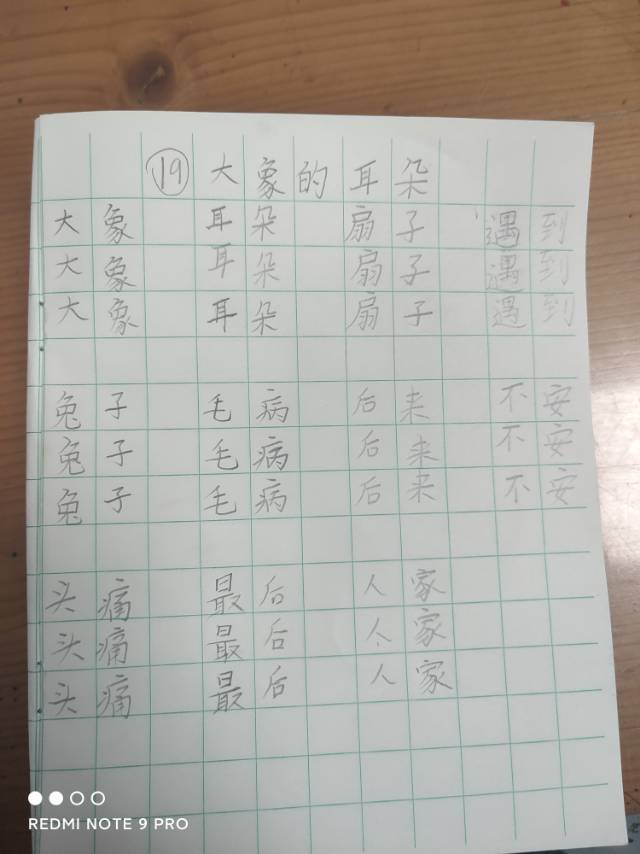 ⑲ 大象的耳朵
大象 耳朵 扇子 遇到
大象 耳朵 扇子 遇到
大象 耳朵 扇子 遇到
兔子 毛病 后来 不安
兔子 毛病 后来 不安
兔子 毛病 后来 不安
头痛 最后 人家
头痛 最后 人家
头痛 最后 人家
REDMI NOTE 9 PRO